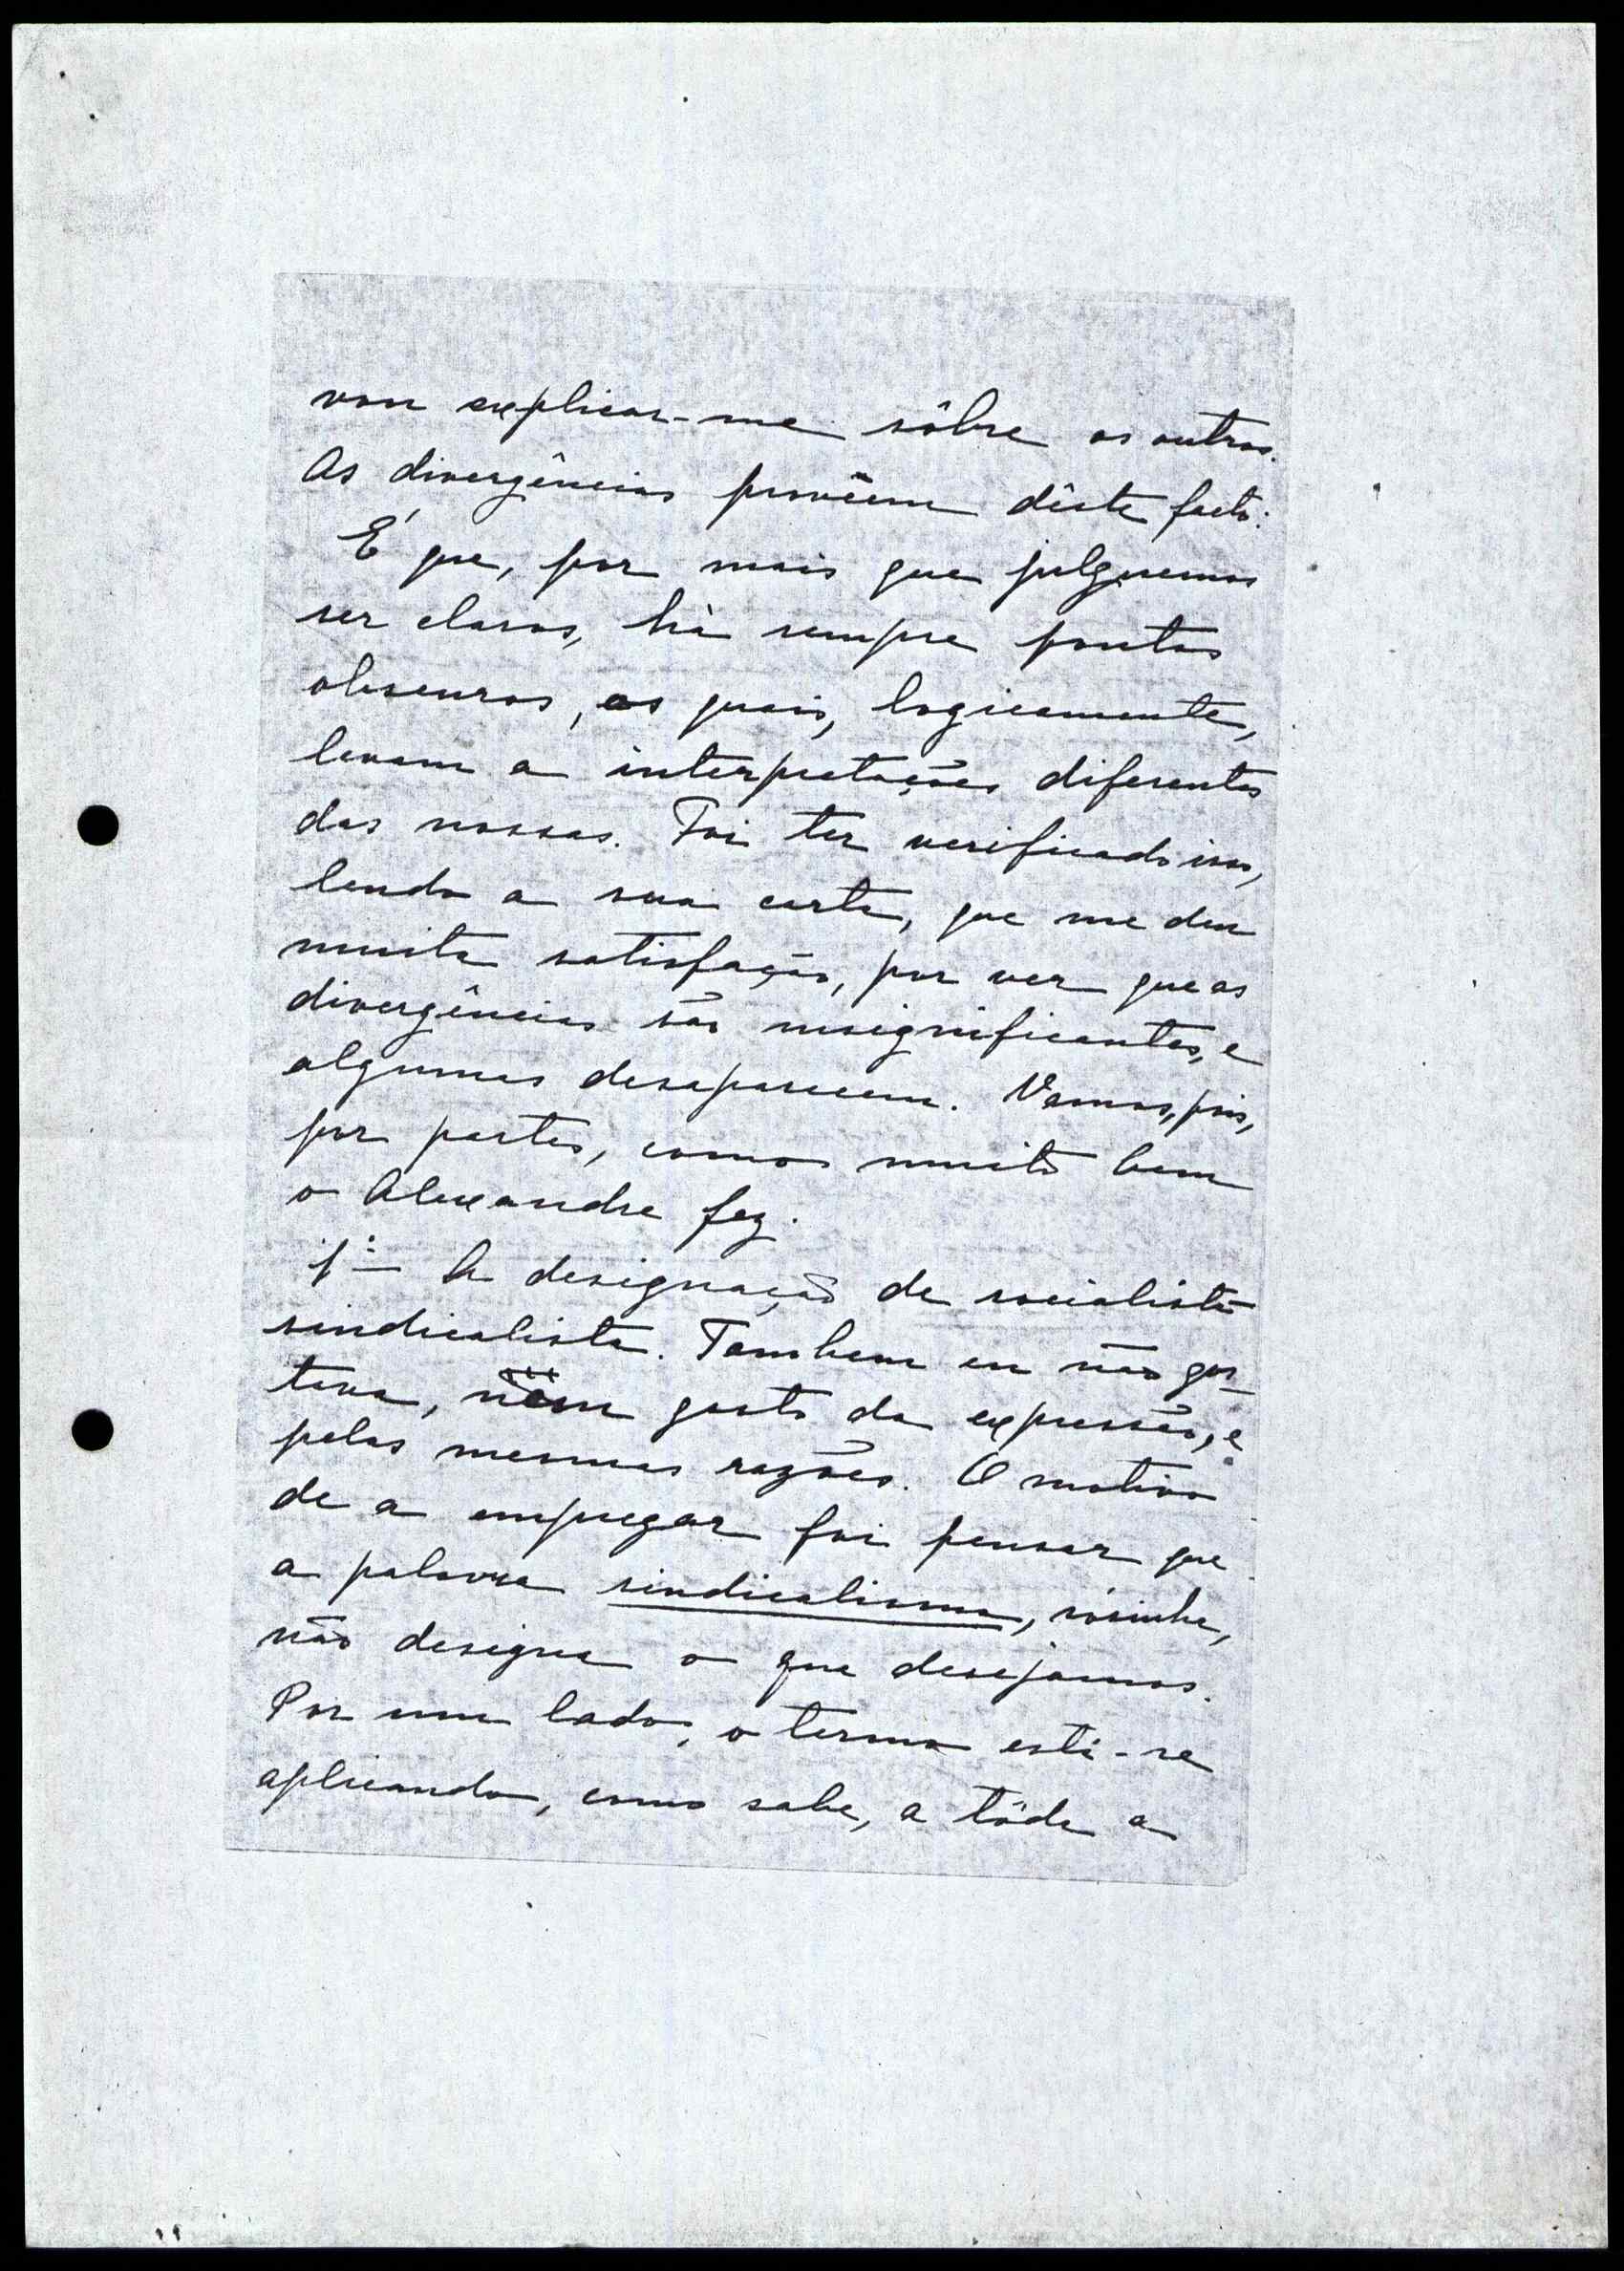 vou explicar-me sôbre os outros.
As divergências provêem dêste facto:
É que, por mais que julguemos
ser claros, há sempre pontos
obscuros, os quais, logicamente,
levam a interpretações diferentes
das nossas. Foi ter verificado isso,
lendo a sua carta, que me deu
muita satisfação, por ver que as
divergências são insignificantes, e
algumas desaparecem. Vamos, pois,
por partes, como muito bem
o Alexandre fez.
1º - A designação de socialista-
sindicalista. Tambem eu não gos-
tava, nem gosto da expressão, e
pelas mesmas razões. O motivo
de a empregar foi pensar que
a palavra sindicalismo, sòsinha,
não designa o que desejamos.
Por um lado, o termo está-se
aplicando, como sabe, a tôda a